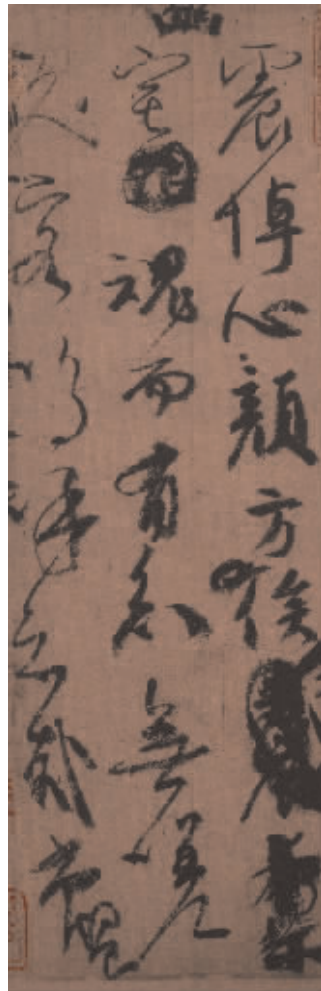 震悼心顏方俟
宅魂而有知無嗟
久客嗚呼哀哉尚饗